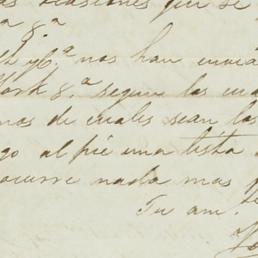 ocasiones que se
a 8.ª
th y C.ª nos han envia
York 8.ª segun las cua
mas de cuales sean las
go al pié una lista
ocurre nada mas
Tu am.